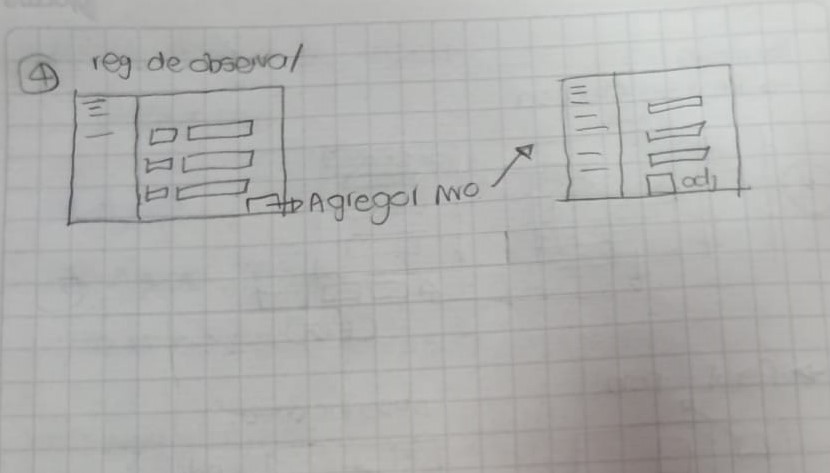 4 reg de observal
Agregar nvo
adj